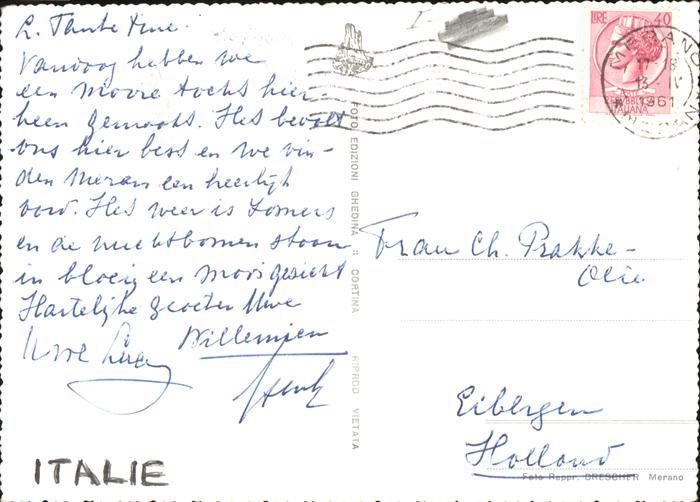 L. Tante Mne.
Vandaag hebben we
een mooie tocht hier-
heen gemaakt. Het bevalt
ons hier best en we vin-
den Meran een heerlijk
oord. Het weer is zomers
en de vruchtbomen staan
in bloei, een mooi gezicht
Hartelijke groeten Uwe
Uwe Willemien
Henk
ITALIE
FOTO EDIZIONI GHEDINA :: CORTINA
RIPROD VIETATA
LIRE 40
REPUBBLICA
ITALIANA
MERANO
1961
Frau Ch. Prakke-
Olie
Eibergen
Holland
Foto Reppr. DRESCHER Merano